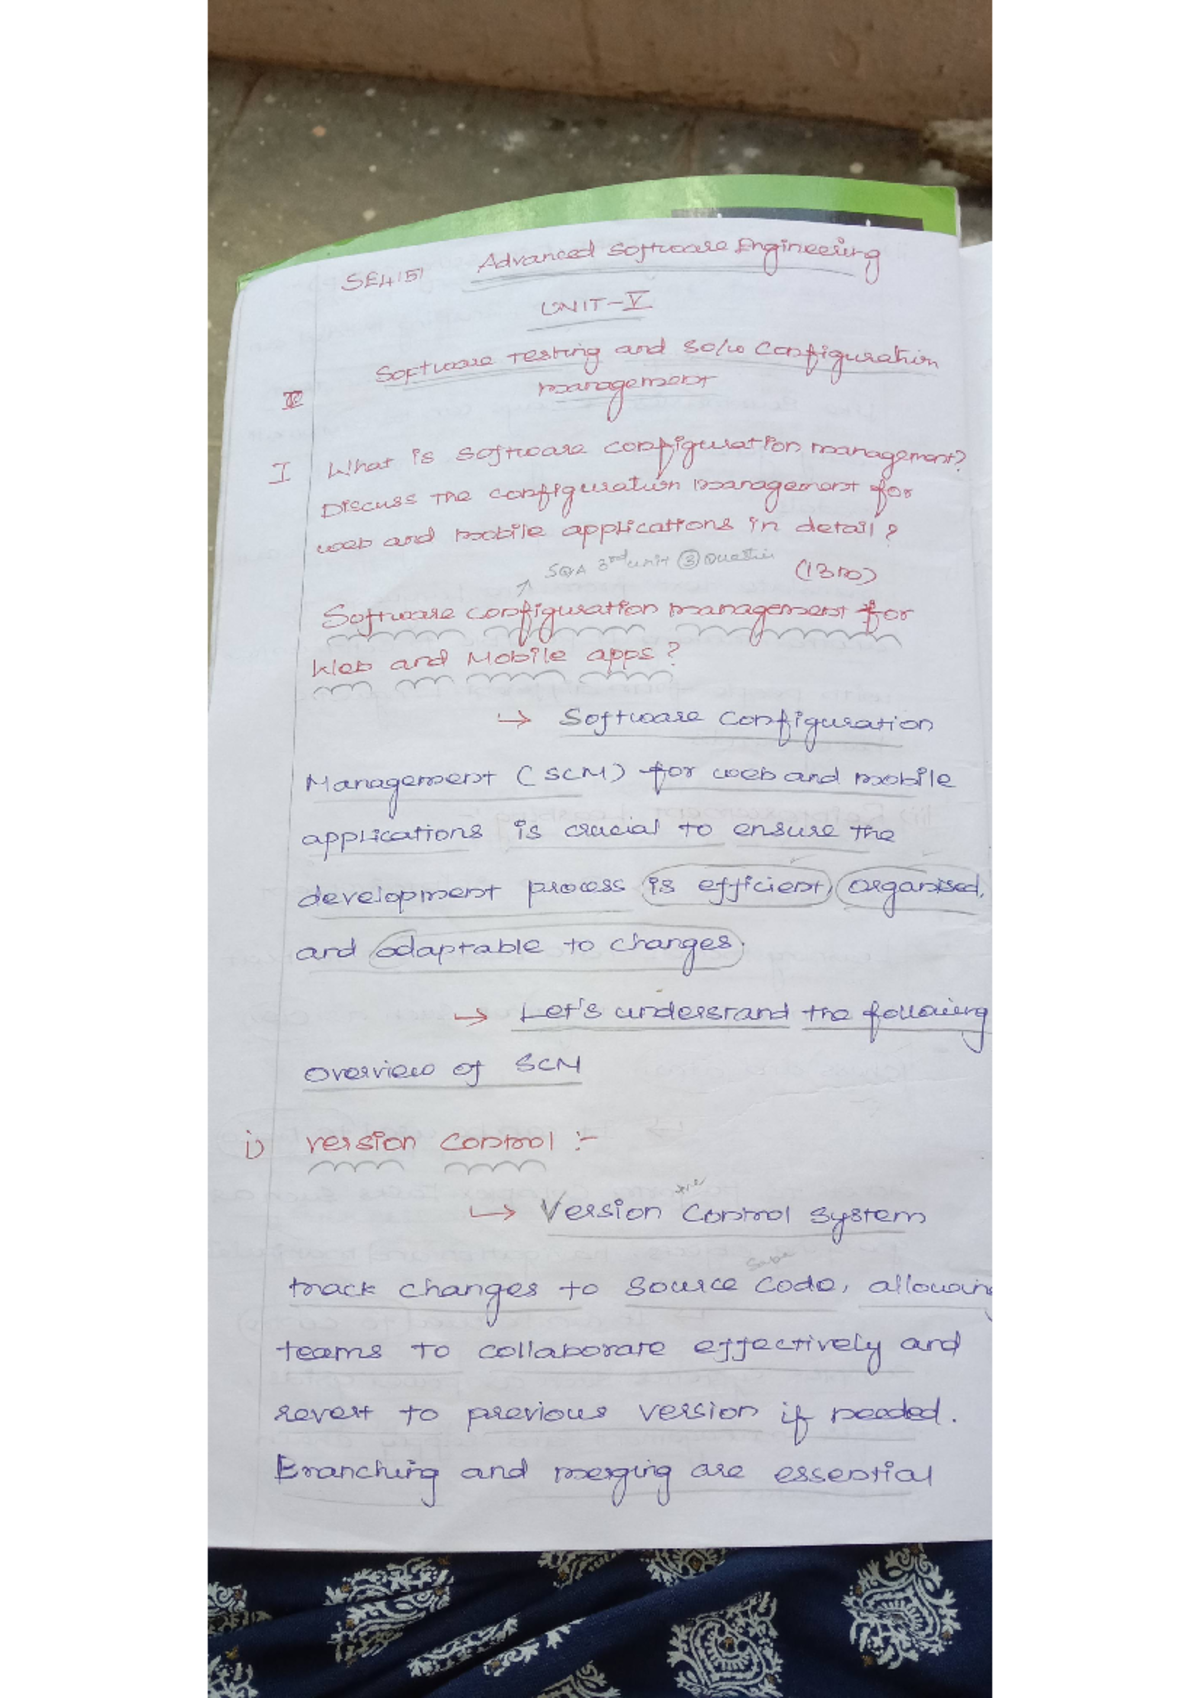 SE4151 Advanced Software Engineering
UNIT-V
Software Testing and So/w Configuration
management
I What is software configuration management?
Discuss the configuration management for
web and mobile applications in detail?
SQA 3rd unit ③ Question
(13m)
Software configuration management for
Web and Mobile apps?
→ Software Configuration
Management (SCM) for web and mobile
applications is crucial to ensure the
development process is efficient, organised,
and adaptable to changes.
→ Let's understand the following
overview of SCM
i) version control :-
→ Version Control system
track changes to source code, allowing
teams to collaborate effectively and
revert to previous version if needed.
Branching and merging are essential